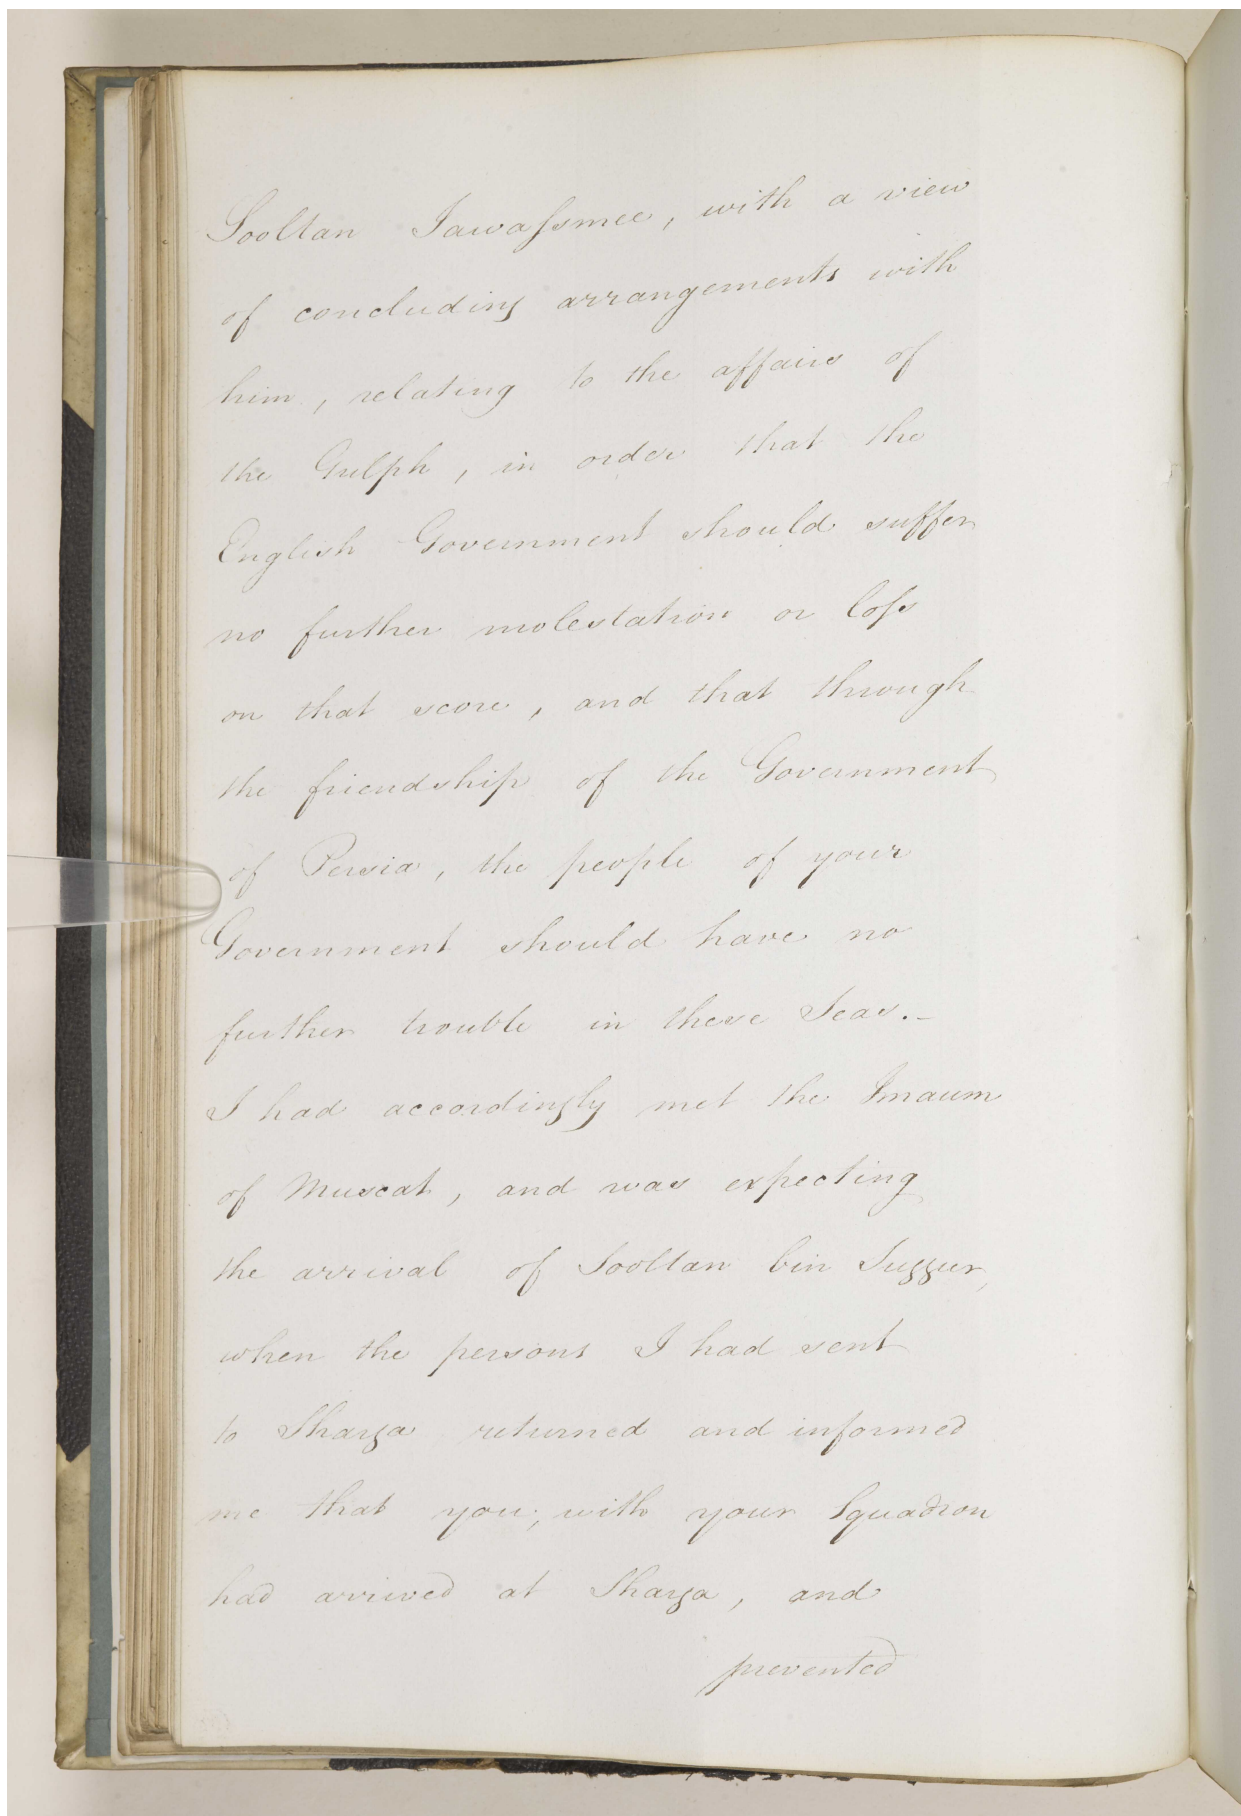 Sooltan Jawassmee, with a view
of concluding arrangements with
him, relating to the affairs of
the Gulph, in order that the
English Government should suffer
no further molestation or loss
on that score, and that through
the friendship of the Government
of Persia, the people of your
Government should have no
further trouble in these Seas.-
I had accordingly met the Imaum
of Muscat, and was expecting
the arrival of Sooltan bin Suggur,
when the persons I had sent
to Sharga returned and informed
me that you, with your Squadron
had arrived at Sharga, and
prevented